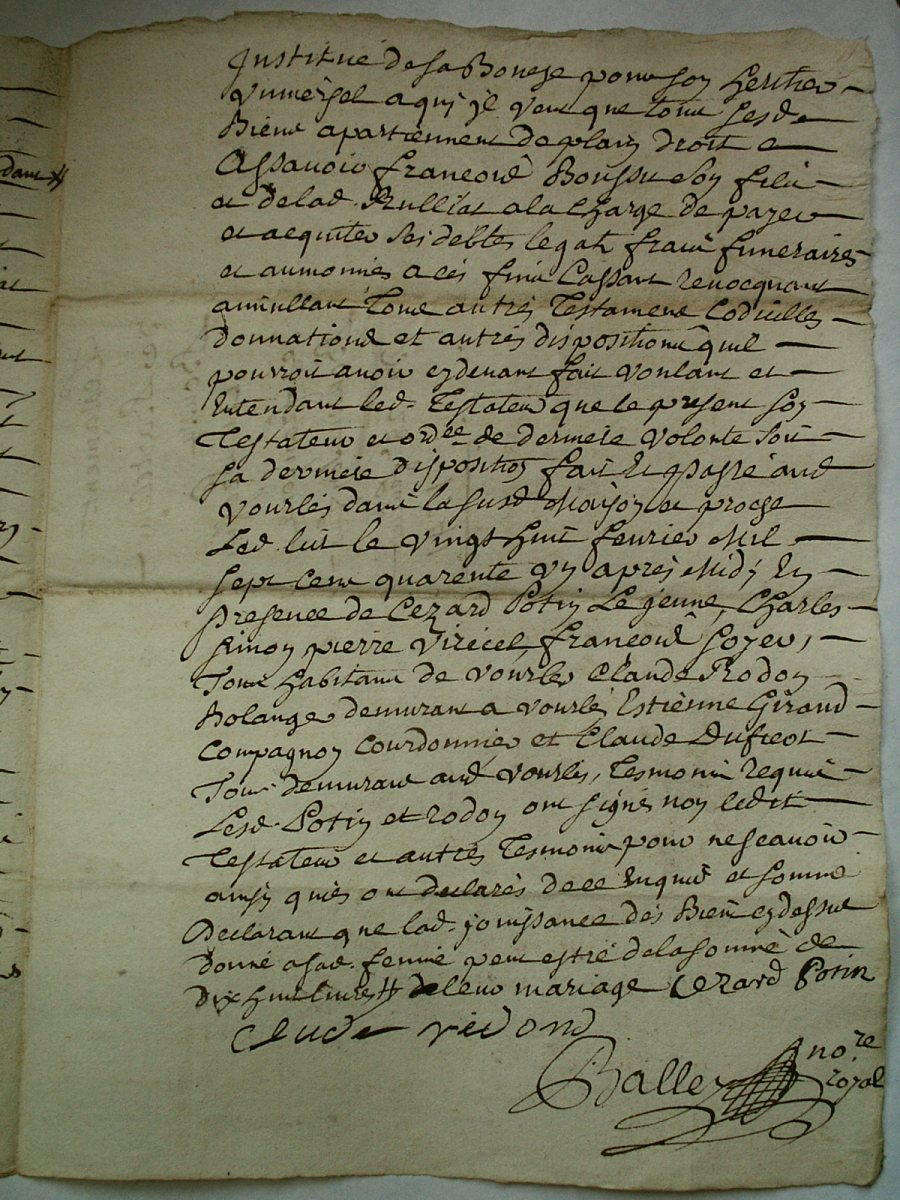 Institué de sa Bouche pour son heritier
Vniversel a quj je veut que tous sesd.
Biens apartiennent de plain droit
Assavoir francois Boussu son fils
et delad. Rulliat a la charge de payer
et acquiter ses debtes legats fraix funeraires
et aumonnes a ces fins Cassant revocquant
annullant Tous autres Testament Codicilles
donnations et autres dispositions quil
pourroit avoir cydevant fait voulant et
Entendant led. Testateur que le present son
Testateur et ord.ce de derniere volonté soit
sa derniere disposition fait et passé aud
Vourles dans la susd Maison et proche
Led. lit le vingt huit fevrier Mil
sept cent quarente vn après Midy En
presence de Cezard Potin Le jeune, Charles
simon pierre Viricel, francois soyer,
Tous habitans de Vourles Claude Rodon
Bolanger demurant a Vourles Estienne Giraud
Compagnon Courdonnier et Claude Dufieot
Tous demurant aud Vourles, Tesmoins requis
Lesd. Potin et rodon ont signés non ledit
Testateur et autres Tesmoins pour ne scavoir
ainsy quies ont declarés de ce Enquis et sommé
Declarant que lad. jouissance des Biens cydessus
donné a sad. femme peut estre de la somme de
dix huit livres # de leur mariage Cezard Potin
Clude redond
Balley no.re
royal
dans #